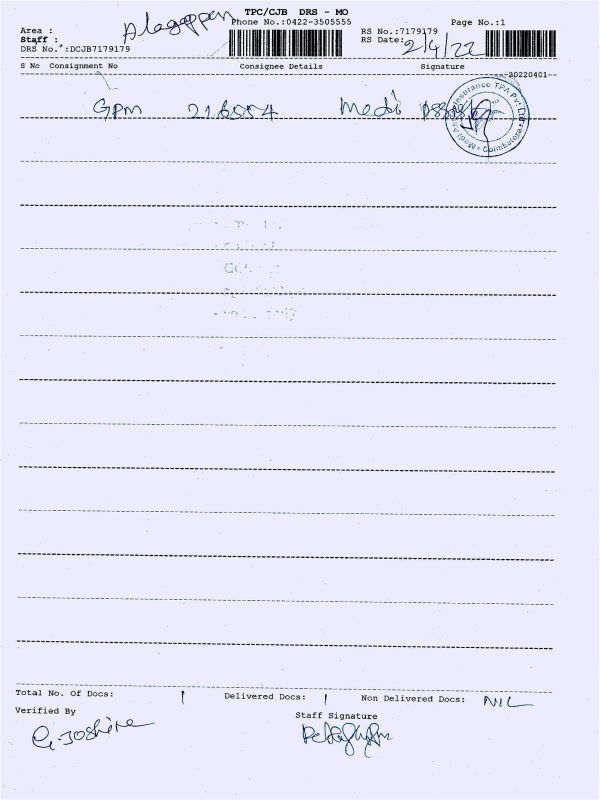 Alagappan TPC/CJB DRS - MO
Phone No.:0422-3505555 Page No.:1
Area :
Staff : RS No.:7179179
RS Date: 2/4/22
DRS No.:DCJB7179179
S No Consignment No Consignee Details Signature
20220401
GPM Medi
Insurance TPA Pvt Ltd Coimbatore
Total No. Of Docs: 1 Delivered Docs: 1 Non Delivered Docs: NIL
Verified By Staff Signature
G. Joshina